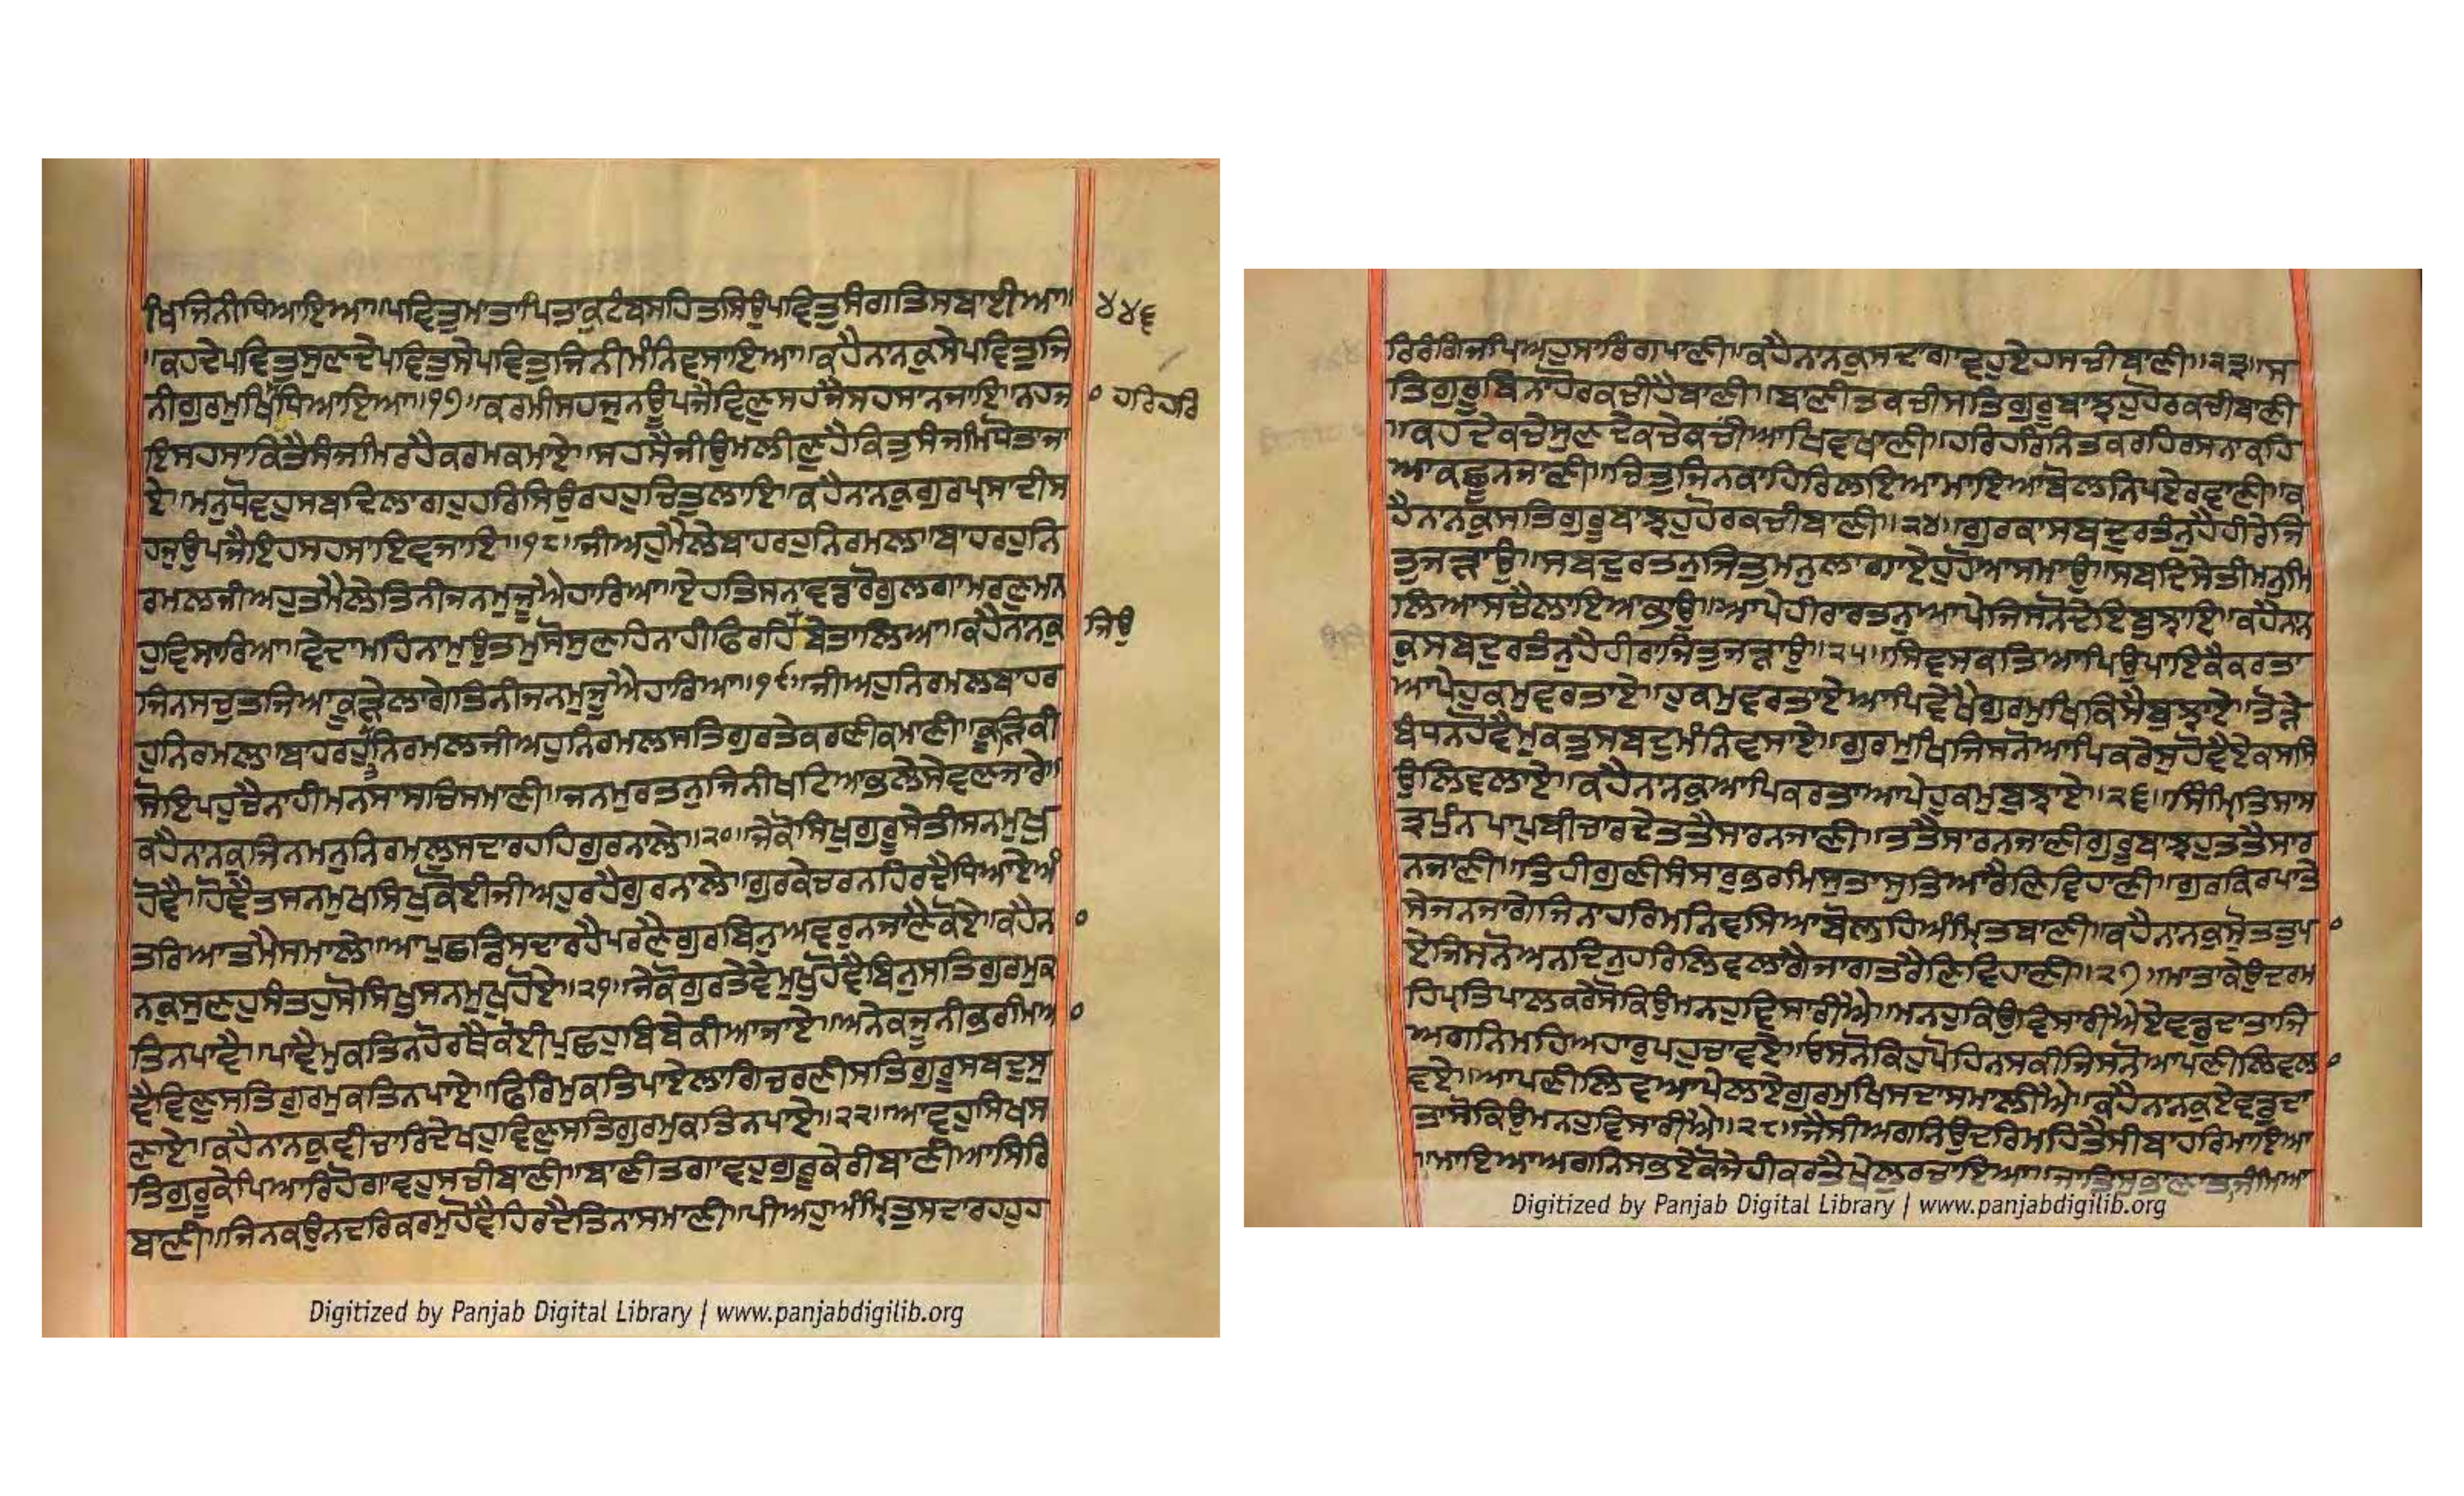 ਖਿਜਿਨੀਧਿਆਇਆ॥ਪਵਿਤੁਮਾਤਾਪਿਤਾਕੁਟੰਬਸਹਿਤਸਿਉਪਵਿਤੁਸੰਗਤਿਸਬਾਈਆ॥ ੪੪੬
॥ਕਹਦੇਪਵਿਤੁਸੁਣਦੇਪਵਿਤੁਸੇਪਵਿਤੁਜਿਨੀਮੰਨਿਵਸਾਇਆ॥ਕਹੈਨਾਨਕੁਸੇਪਵਿਤੁਜਿ
ਨੀਗੁਰਮੁਖਿਧਿਆਇਆ॥੧੭॥ਕਰਮੀਸਹਜੁਨਊਪਜੈਵਿਣੁਸਹਜੈਸਹਸਾਨਜਾਇ॥ਨਹਜਾ ਹਰਿਹਰਿ
ਇਸਹਸਾਕਿਤੈਸੰਜਮਿਰਹੈਕਰਮਕਮਾਏ॥ਸਹਸੈਜੀਉਮਲੀਣੁਹੈਕਿਤੁਸੰਜਮਿਧੋਤਾਜਾ
ਏ॥ਮਨੁਧੋਵਹੁਸਬਦਿਲਾਗਹੁਹਰਿਸਿਉਰਹਹੁਚਿਤੁਲਾਇ॥ਕਹੈਨਾਨਕੁਗੁਰਪ੍ਰਸਾਦੀਸ
ਹਜੁਉਪਜੈਇਹਸਹਸਾਇਵਜਾਇ॥੧੮॥ਜੀਅਹੁਮੈਲੇਬਾਹਰਹੁਨਿਰਮਲ॥ਬਾਹਰਹੁਨਿ
ਰਮਲਜੀਅਹੁਤਮੈਲੇਤਿਨੀਜਨਮੁਜੂਐਹਾਰਿਆ॥ਏਹਤਿਸਨਾਵਡਾਰੋਗੁਲਗਾਮਰਣੁਮਨ
ਹੁਵਿਸਾਰਿਆ॥ਵੇਦਾਮਹਿਨਾਮੁਉਤਮੁਸੋਸੁਣਹਿਨਾਹੀਫਿਰਹਿਬੇਤਾਲਿਆ॥ਕਹੈਨਾਨਕੁ ਜਿਉ
ਜਿਨਸਚੁਤਜਿਆਕੂੜੇਲਾਗੇਤਿਨੀਜਨਮੁਜੂਐਹਾਰਿਆ॥੧੯॥ਜੀਅਹੁਨਿਰਮਲਬਾਹਰ
ਹੁਨਿਰਮਲ॥ਬਾਹਰਹੁਨਿਰਮਲਜੀਅਹੁਨਿਰਮਲਸਤਿਗੁਰਤੇਕਰਣੀਕਮਾਣੀ॥ਕੂੜਿਕੀ
ਸੋਇਪਹੁਚੈਨਾਹੀਮਨਸਾਸਚਿਸਮਾਣੀ॥ਜਨਮੁਰਤਨੁਜਿਨੀਖਟਿਆਭਲੇਸੇਵਣਜਾਰੇ॥
ਕਹੈਨਾਨਕੁਜਿਨਮਨੁਨਿਰਮਲੁਸਦਾਰਹਹਿਗੁਰਨਾਲੇ॥੨੦॥ਜੇਕੋਸਿਖੁਗੁਰੂਸੇਤੀਸਨਮੁਖੁ
ਹੋਵੈ॥ਹੋਵੈਤਸਨਮੁਖਸਿਖੁਕੋਈਜੀਅਹੁਰਹੈਗੁਰਨਾਲੇ॥ਗੁਰਕੇਚਰਨਹਿਰਦੈਧਿਆਏਅੰ
ਤਰਿਆਤਮੈਸਮਾਲੇ॥ਆਪੁਛਡਿਸਦਾਰਹੈਪਰਣੈਗੁਰਬਿਨੁਅਵਰੁਨਜਾਣੈਕੋਏ॥ਕਹੈਨਾ
ਨਕੁਸੁਣਹੁਸੰਤਹੁਸੋਸਿਖੁਸਨਮੁਖੁਹੋਏ॥੨੧॥ਜੇਕੋਗੁਰਤੇਵੇਮੁਖੁਹੋਵੈਬਿਨੁਸਤਿਗੁਰਮੁਕ
ਤਿਨਪਾਵੈ॥ਪਾਵੈਮੁਕਤਿਨਹੋਰਥੈਕੋਈਪੁਛਹੁਬਿਬੇਕੀਆਜਾਏ॥ਅਨੇਕਜੂਨੀਭਰਮਿਆ
ਵੈਵਿਣੁਸਤਿਗੁਰਮੁਕਤਿਨਪਾਏ॥ਫਿਰਿਮੁਕਤਿਪਾਏਲਾਗਿਚਰਣੀਸਤਿਗੁਰੂਸਬਦੁਸੁ
ਣਾਏ॥ਕਹੈਨਾਨਕੁਵੀਚਾਰਿਦੇਖਹੁਵਿਣੁਸਤਿਗੁਰਮੁਕਤਿਨਪਾਏ॥੨੨॥ਆਵਹੁਸਿਖਸ
ਤਿਗੁਰੂਕੇਪਿਆਰਿਹੋਗਾਵਹੁਸਚੀਬਾਣੀ॥ਬਾਣੀਤਗਾਵਹੁਗੁਰੂਕੇਰੀਬਾਣੀਆਸਿਰਿ
ਬਾਣੀ॥ਜਿਨਕਉਨਦਰਿਕਰਮੁਹੋਵੈਹਿਰਦੈਤਿਨਾਸਮਾਣੀ॥ਪੀਅਹੁਅੰਮ੍ਰਿਤੁਸਦਾਰਹਹੁਹ
Digitized by Panjab Digital Library | www.panjabdigilib.org
ਰਿਰੰਗਿਜਪਿਅਹੁਸਾਰਿਗਪਾਣੀ॥ਕਹੈਨਾਨਕੁਸਦਾਗਾਵਹੁਏਹਸਚੀਬਾਣੀ॥੨੩॥ਸ
ਤਿਗੁਰੂਬਿਨਾਹੋਰਕਚੀਹੈਬਾਣੀ॥ਬਾਣੀਤਕਚੀਸਤਿਗੁਰੂਬਾਝਹੁਹੋਰਕਚੀਬਾਣੀ
॥ਕਹਦੇਕਚੇਸੁਣਦੇਕਚੇਕਚੀਆਖਿਵਖਾਣੀ॥ਹਰਿਹਰਿਨਿਤਕਰਹਿਰਸਨਾਕਹਿ
ਆਕਛੂਨਜਾਣੀ॥ਚਿਤੁਜਿਨਕਾਹਿਰਿਲਇਆਮਾਇਆਬੋਲਨਿਪਏਰਵਾਣੀ॥ਕ
ਹੈਨਾਨਕੁਸਤਿਗੁਰੂਬਾਝਹੁਹੋਰਕਚੀਬਾਣੀ॥੨੪॥ਗੁਰਕਾਸਬਦੁਰਤੰਨੁਹੈਹੀਰੇਜਿ
ਤੁਜੜਾਉ॥ਸਬਦੁਰਤਨੁਜਿਤੁਮਨੁਲਾਗਾਏਹੁਹੋਆਸਮਾਉ॥ਸਬਦਿਸੇਤੀਮਨੁਮਿ
ਲਿਆਸਚੈਲਾਇਆਭਾਉ॥ਆਪੇਹੀਰਾਰਤਨੁਆਪੇਜਿਸਨੋਦੇਇਬੁਝਾਇ॥ਕਹੈਨਾਨ
ਕੁਸਬਦੁਰਤੰਨੁਹੈਹੀਰਾਜਿਤੁਜੜਾਉ॥੨੫॥ਸਿਵਸਕਤਿਆਪਿਉਪਾਇਕੈਕਰਤਾ
ਆਪੇਹੁਕਮੁਵਰਤਾਏ॥ਹੁਕਮੁਵਰਤਾਏਆਪਿਵੇਖੈਗੁਰਮੁਖਿਕਿਸੈਬੁਝਾਏ॥ਤੋੜੇ
ਬੰਧਨਹੋਵੈਮੁਕਤੁਸਬਦੁਮੰਨਿਵਸਾਏ॥ਗੁਰਮੁਖਿਜਿਸਨੋਆਪਿਕਰੇਸੁਹੋਵੈਏਕਸਸਿ
ਉਲਿਵਲਾਏ॥ਕਹੈਨਾਨਕੁਆਪਿਕਰਤਾਆਪੇਹੁਕਮੁਬੁਝਾਏ॥੨੬॥ਸਿੰਮ੍ਰਿਤਿਸਾਸ
ਤ੍ਰਪੁੰਨਪਾਪਬੀਚਾਰਦੇਤਤੈਸਾਰਨਜਾਣੀ॥ਤਤੈਸਾਰਨਜਾਣੀਗੁਰੂਬਾਝਹੁਤਤੈਸਾਰ
ਨਜਾਣੀ॥ਤਿਹੀਗੁਣੀਸੰਸਾਰੁਭਰਮਿਸੁਤਾਸੁਤਿਆਰੈਣਿਵਿਹਾਣੀ॥ਗੁਰਕਿਰਪਾਤੇ
ਸੇਜਨਜਾਗੇਜਿਨਾਹਰਿਮਨਿਵਸਿਆਬੋਲਹਿਅੰਮ੍ਰਿਤਬਾਣੀ॥ਕਹੈਨਾਨਕੁਸੋਤਤੁਪਾ
ਏਜਿਸਨੋਅਨਦਿਨੁਹਰਿਲਿਵਲਾਗੈਜਾਗਤਰੈਣਿਵਿਹਾਣੀ॥੨੭॥ਮਾਤਾਕੇਉਦਰਮ
ਹਿਪ੍ਰਤਿਪਾਲਕਰੇਸੋਕਿਉਮਨਹੁਵਿਸਾਰੀਐ॥ਮਨਹੁਕਿਉਵਿਸਾਰੀਐਏਵਡੁਦਾਤਾਜਿ
ਅਗਨਿਮਹਿਅਹਾਰੁਪਹੁਚਾਵਏ॥ਓਸਨੋਕਿਹੁਪੋਹਿਨਸਕੀਜਿਸਨੋਆਪਣੀਲਿਵਲਾ
ਵਏ॥ਆਪਣੀਲਿਵਆਪੇਲਾਏਗੁਰਮੁਖਿਸਦਾਸਮਾਲੀਐ॥ਕਹੈਨਾਨਕੁਏਵਡੁਦਾ
ਤਾਸੋਕਿਉਮਨਹੁਵਿਸਾਰੀਐ॥੨੮॥ਜੈਸੀਅਗਨਿਉਦਰਿਮਹਿਤੈਸੀਬਾਹਰਿਮਾਇਆ
॥ਮਾਇਆਅਗਨਿਸਭਏਕੋਜੇਹੀਕਰਤੈਖੇਲੁਰਚਾਇਆ॥ਜਾਤਿਸੁਭਾਣਾਤਾਜੰਮਿਆ
Digitized by Panjab Digital Library | www.panjabdigilib.org